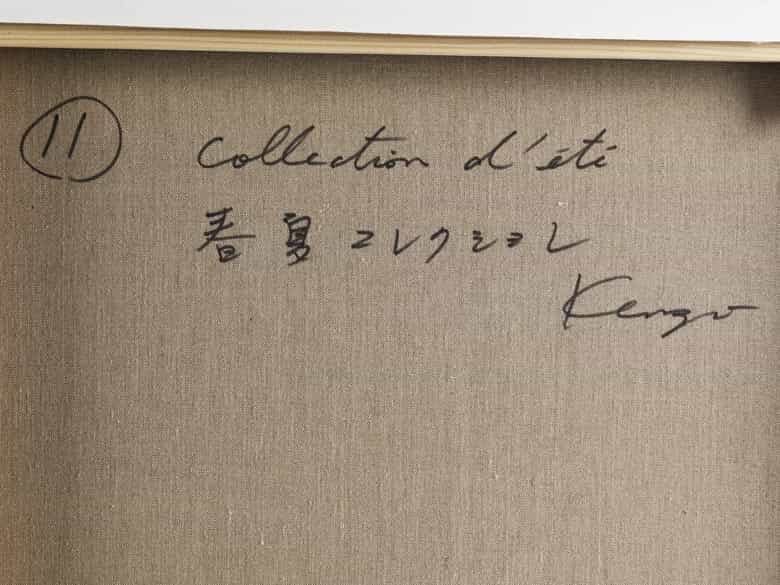 11 Collection d'été
春夏コレクション
Kenzo